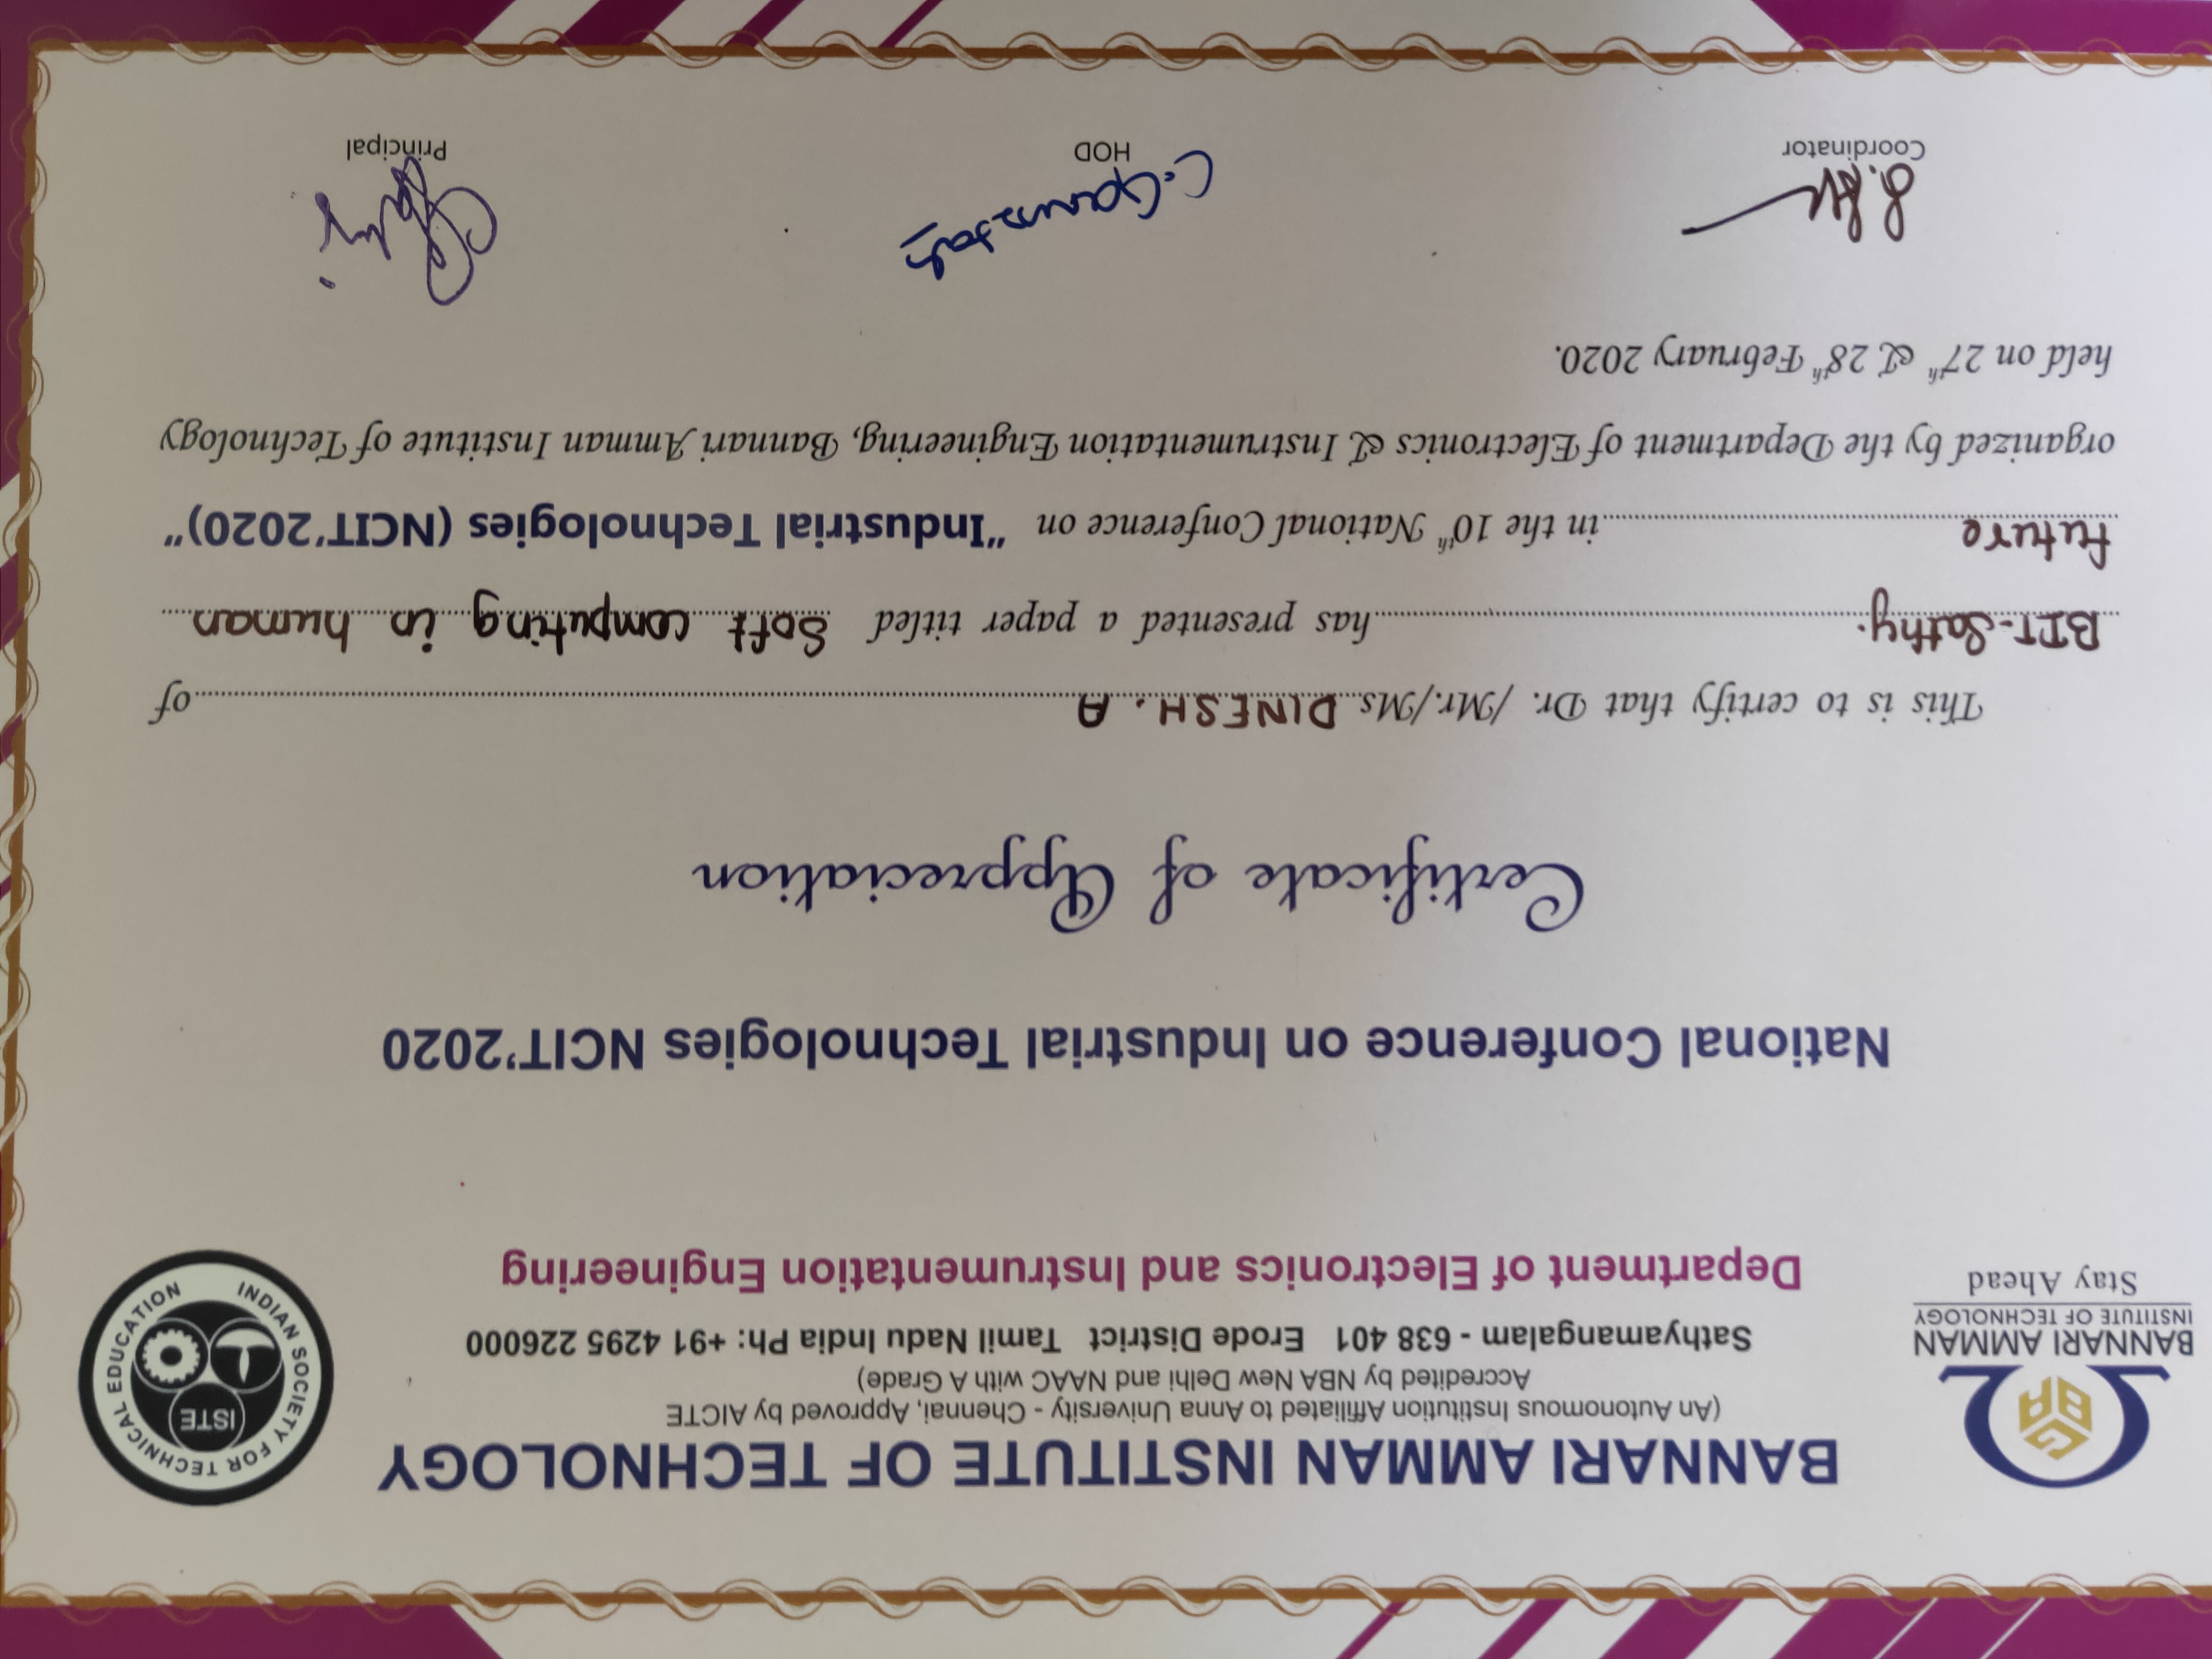 BANNARI AMMAN INSTITUTE OF TECHNOLOGY
(An Autonomous Institution Affiliated to Anna University - Chennai, Approved by AICTE
Accredited by NBA New Delhi and NAAC with A Grade)
Sathyamangalam - 638 401 Erode District Tamil Nadu India Ph: +91 4295 226000
Department of Electronics and Instrumentation Engineering
BANNARI AMMAN
INSTITUTE OF TECHNOLOGY
Stay Ahead
INDIAN SOCIETY FOR TECHNICAL EDUCATION
ISTE
National Conference on Industrial Technologies NCIT'2020
Certificate of Appreciation
This is to certify that Dr. /Mr./Ms. DINESH. A of
BIT-Sathy. has presented a paper titled Soft computing in human
future in the 10th National Conference on "Industrial Technologies (NCIT'2020)"
organized by the Department of Electronics & Instrumentation Engineering, Bannari Amman Institute of Technology
held on 27th & 28th February 2020.
Coordinator
HOD
Principal